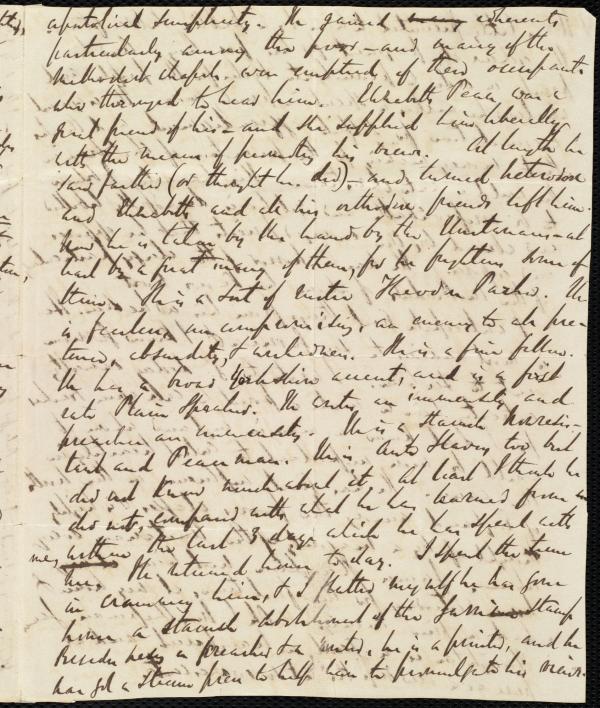 apostolical simplicity. He gained many adherents
particularly among the poor - and many of the
Methodist chapels were emptied of their occupants
who thronged to hear him. Elizabeth Pease was a
great friend of his - and she supplied him liberally
with the means of promoting his views. At length he
said farther (or thought he did) - and turned heterodox
and Elizabeth and all his orthodox friends left him.
Now he is taken by the hand by the Unitarians - at
least by a great many of them, for he frightens some of
them. He is a sort of Theodore Parker. He
is fearless, uncompromising, an enemy to all pre-
tence, absurdity, & wickedness. He is a fine fellow.
He has a broad Yorkshire accent, and is a first
rate Plain Speaker. He writes an immensity and
preaches an immensity. He is a staunch Nonresis-
tant and Peace man. He is Anti Slavery too but
did not know much about it, at least I think he
did not, compared with what he has learned from
me, within the last 3 days which he has spent with
me. He returned home to day. I spent the time
in cramming him, & I flatter myself he has gone
home a staunch abolitionist of the Garrison stamp
Besides being a preacher & a writer, he is a printer, and he
has got a steam press to help him to promulgate his views.